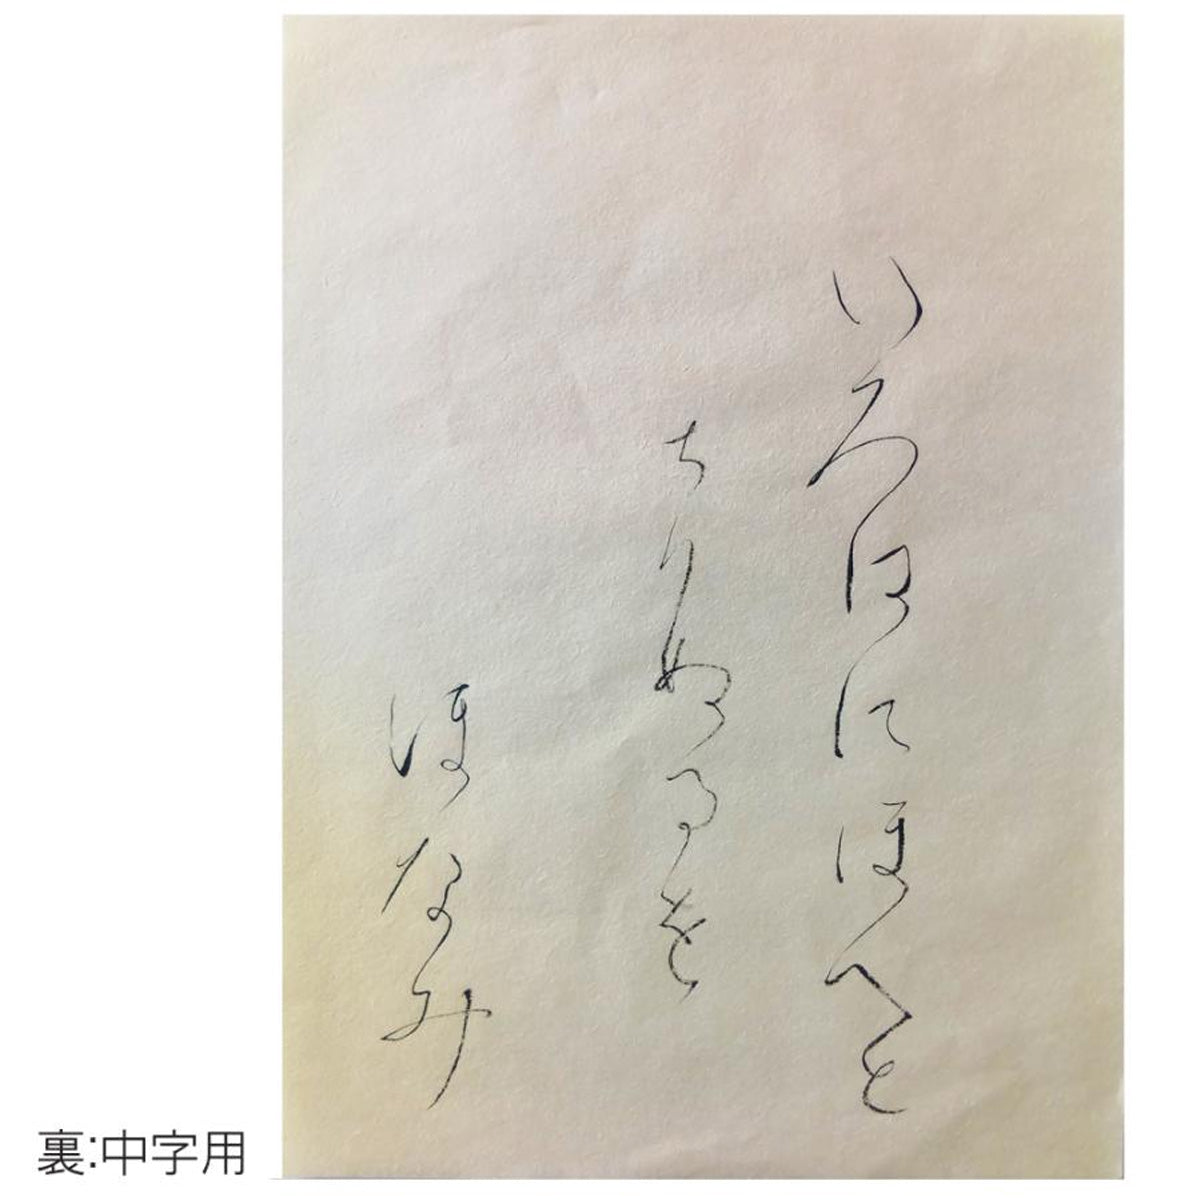 いろはにほへと
ちりぬるを
ほなみ
裏:中字用